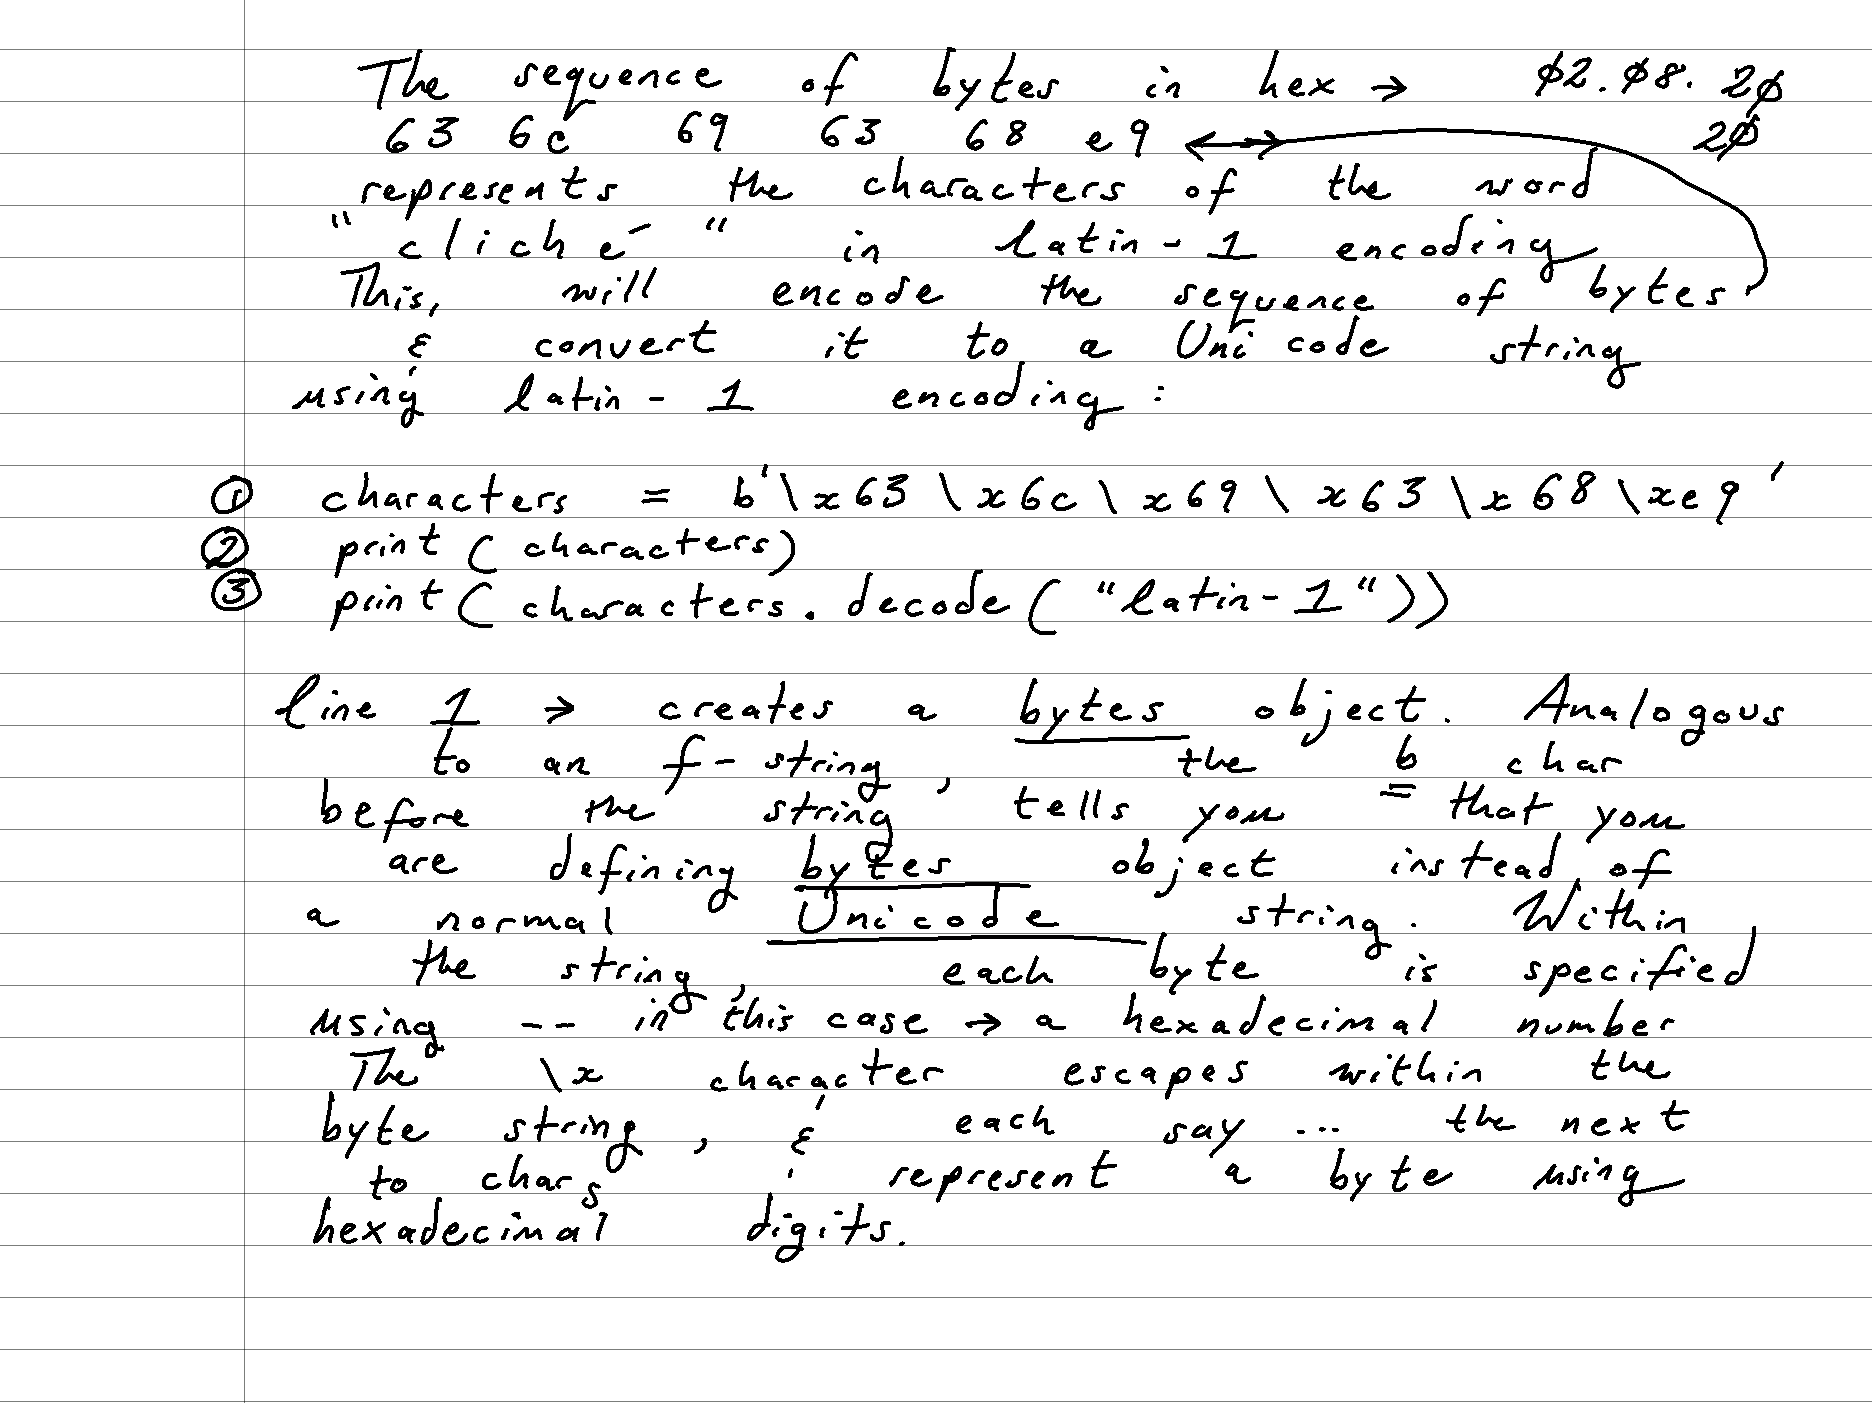 The sequence of bytes in hex → 02.08.20
63 6c 69 63 68 e9 ↔ 20
represents the characters of the word
"cliché" in latin-1 encoding
This, will encode the sequence of bytes
& convert it to a Unicode string
using latin-1 encoding:
① characters = b'\x63\x6c\x69\x63\x68\xe9'
② print(characters)
③ print(characters.decode("latin-1"))
line 1 → creates a bytes object. Analogous
to an f-string, the b char
before the string tells you that you
are defining bytes object instead of
a normal Unicode string. Within
the string, each byte is specified
using -- in this case → a hexadecimal number
The \x character escapes within the
byte string, & each say ... the next
to chars represent a byte using
hexadecimal digits.